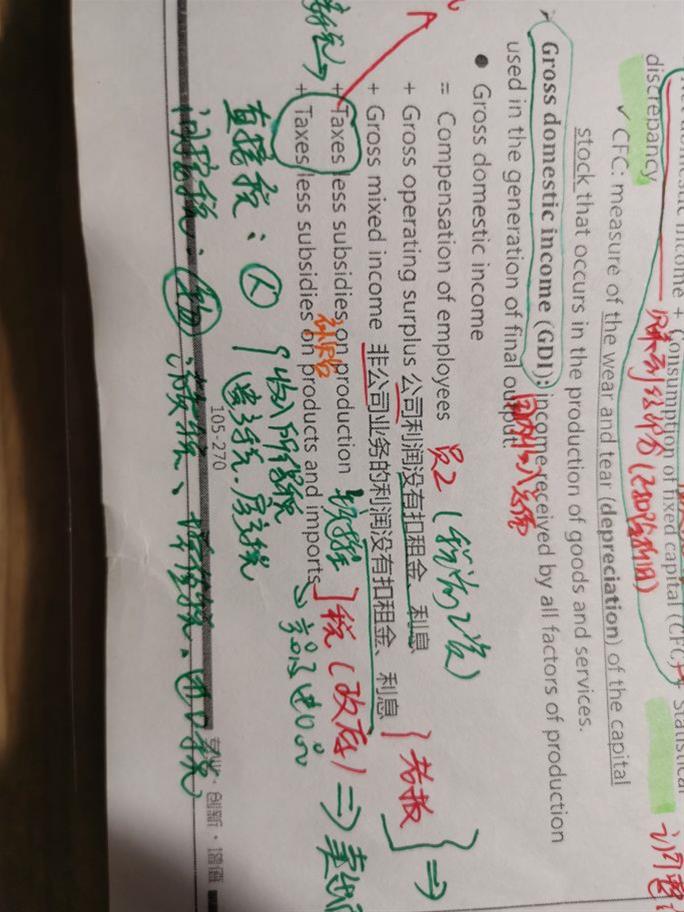 Consumption of fixed capital (CFC) + Statistical
discrepancy
✓ CFC: measure of the wear and tear (depreciation) of the capital
stock that occurs in the production of goods and services.
Gross domestic income (GDI): income received by all factors of production
used in the generation of final output.
● Gross domestic income
= Compensation of employees 员工 (税前工资)
+ Gross operating surplus 公司利润没有扣租金、利息
+ Gross mixed income 非公司业务的利润没有扣租金、利息
} 老板 } ⇒
+ Taxes less subsidies on production
+ Taxes less subsidies on products and imports
} 税 (政府) ⇒
直接税: 人 { 收入所得税
遗产税、房产税
间接税: 物 消费税、增值税、进口税
105-270
专业·创新·增值